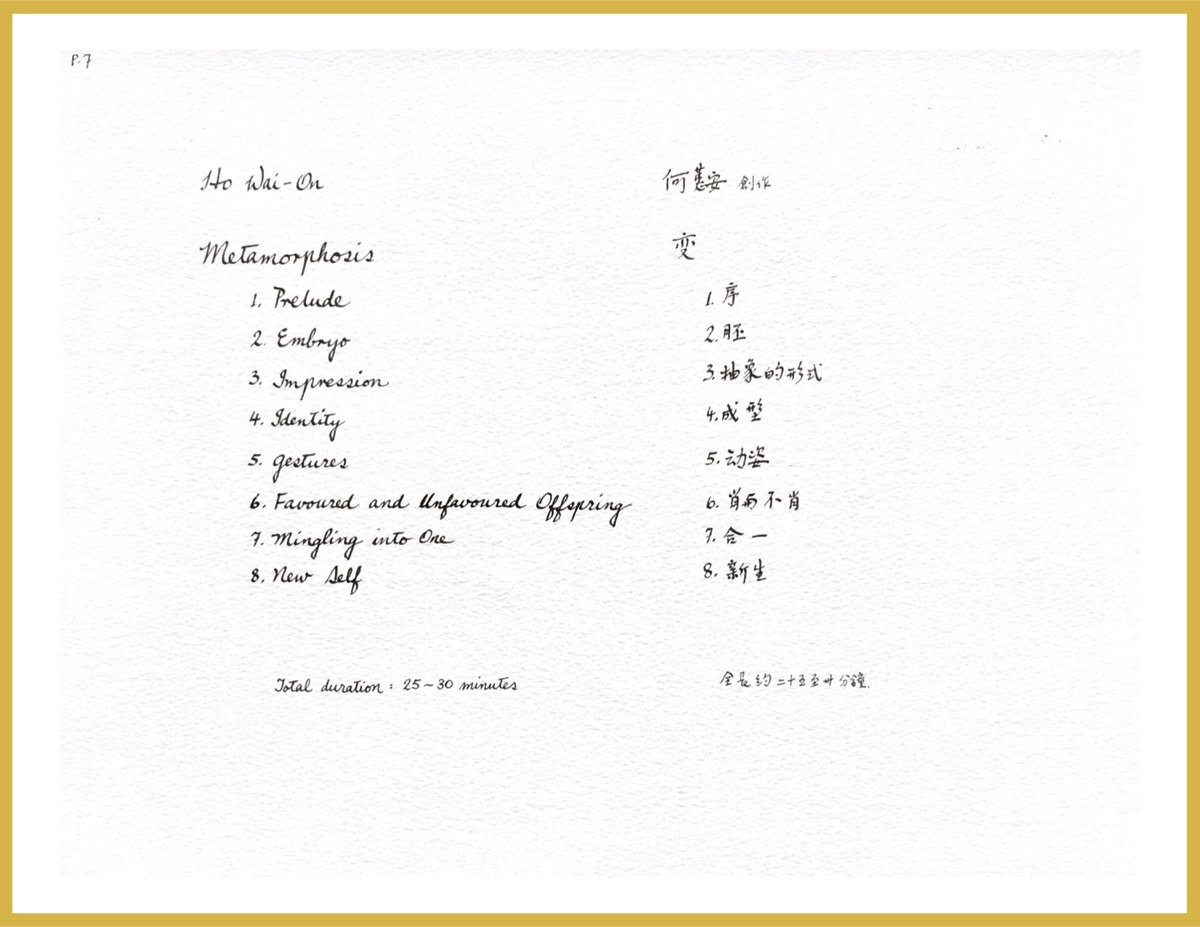 P.7
Ho Wai-On
Metamorphosis
1. Prelude
2. Embryo
3. Impression
4. Identity
5. Gestures
6. Favoured and Unfavoured Offspring
7. Mingling into One
8. New Self
Total duration : 25~30 minutes
何蕙安 創作
变
1. 序
2. 胚
3. 抽象的形式
4. 成型
5. 动姿
6. 肖 不肖
7. 合一
8. 新生
全長约二十五至卅分鐘.